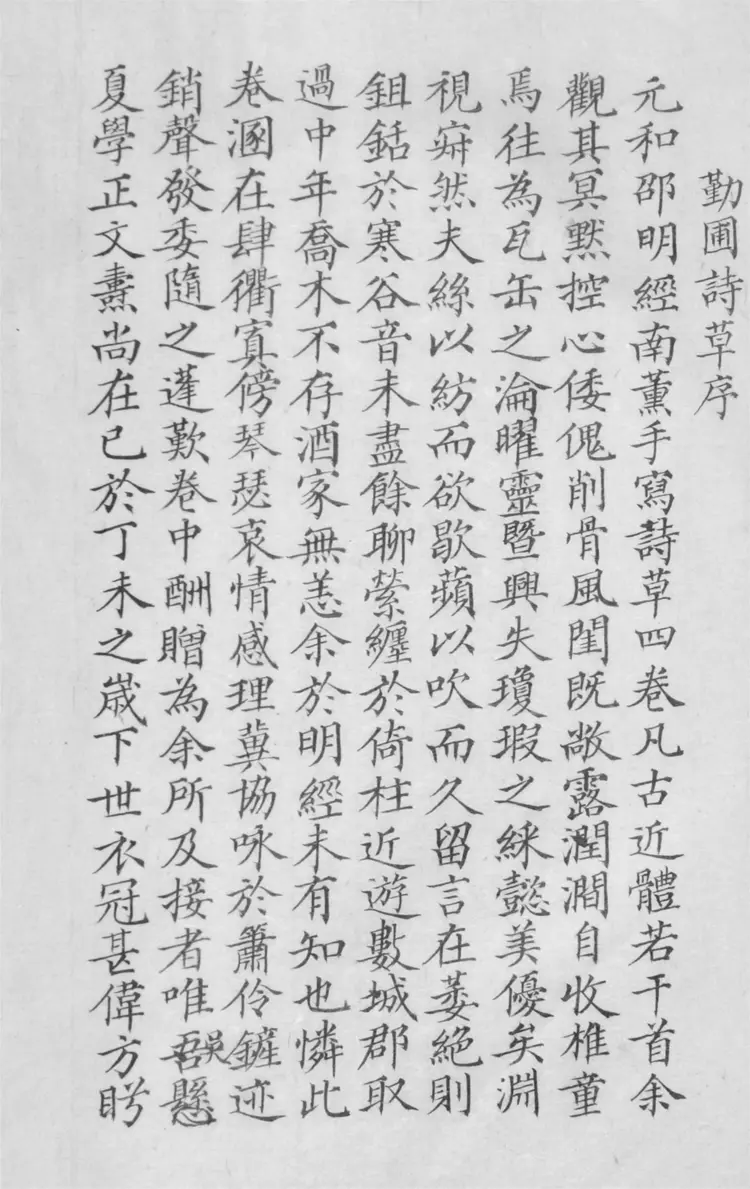 勤圃詩草序
元和邵明經南薰手寫詩草四卷凡古近體若干首余
觀其冥黙控心倭傀削骨風閨既敞露潤澗自收椎童
焉往為瓦缶之淪曜靈暨興失瓊瑕之綵懿美優矣淵
視寂然夫絲以紡而欲歇蘋以吹而久留言在萎絶則
鉏銛於寒谷音未盡餘聊縈纏於倚柱近遊數城郡取
過中年喬木不存酒家無恙余於明經未有知也憐此
卷溷在肆衢寘傍琴瑟哀情感理冀協咏於簫伶鏟迹
銷聲發委隨之蓬歎卷中酬贈為余所及接者唯吳縣
夏學正文燾尚在已於丁未之歲下世衣冠甚偉方眝